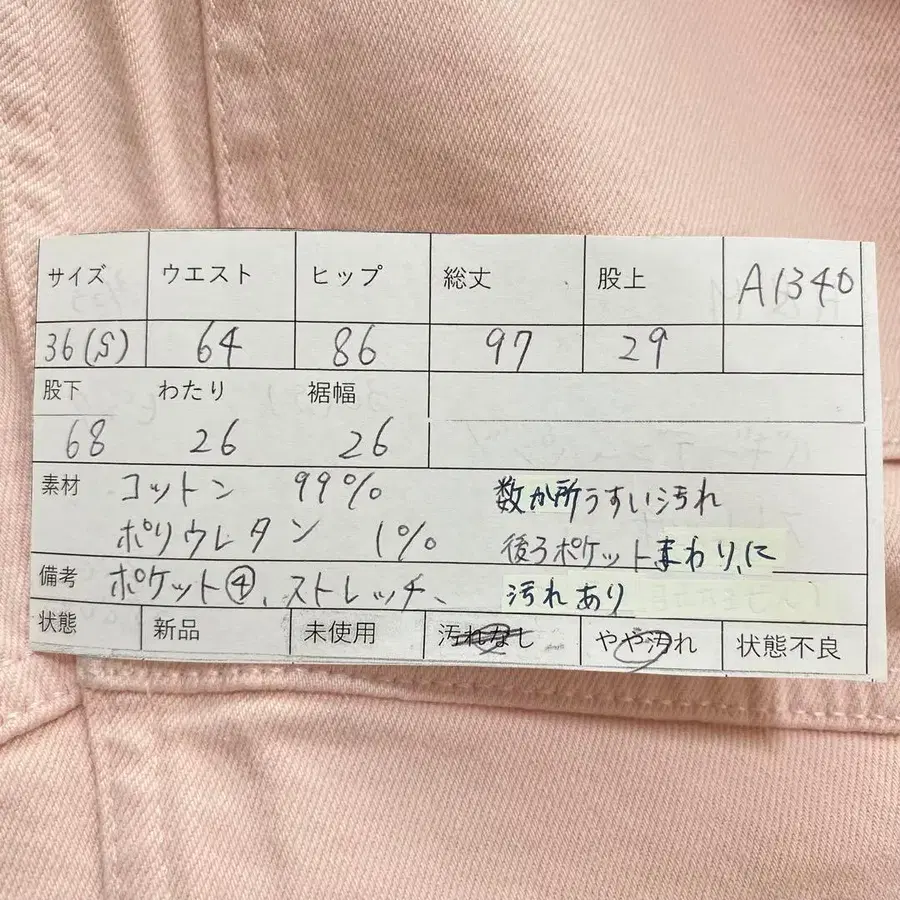 サイズ ウエスト ヒップ 総丈 股上 A1340
36(S) 64 86 97 29
股下 わたり 裾幅
68 26 26
素材 コットン 99% 数か所うすい汚れ
ポリウレタン 1% 後ろポケットまわりに
備考 ポケット④、ストレッチ、 汚れあり
状態 新品 未使用 汚れなし やや汚れ 状態不良